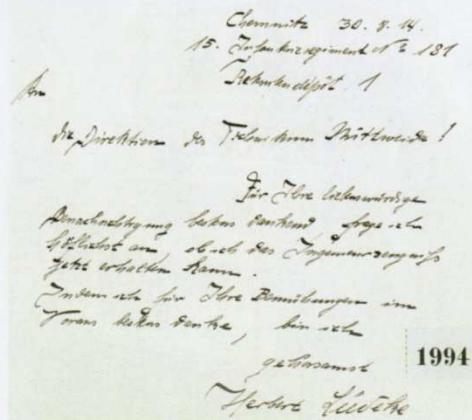 Chemnitz 30. 8. 14.
15. Infanterieregiment No 181
Rekrutendepot 1
An
die Direktion des Technikum Mittweida!
Für Ihre liebenswürdige
Benachrichtigung bestens dankend frage ich
höflichst an ob ich das Ingenieurzeugniß
jetzt erhalten kann.
Indem ich für Ihre Bemühungen im
Voraus bestens danke, bin ich
gehorsamst
Herbert Lüdtke
1994